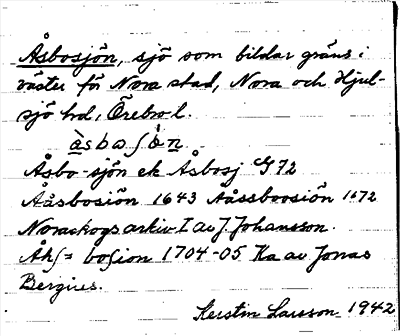 Åsbosjön, sjö som bildar gräns i
väster för Nora stad, Nora och Hjul-
sjö hd, Örebro l.
åsboʃön
Åsbo-sjön ek Åsbosj G 72
Aåsbosiön 1643 Aåssboosiön 1672
Noraskogsarkiv I av J. Johansson.
Åhʃ= boʃion 1704-05 Ka av Jonas
Bergius.
Kerstin Larsson 1942